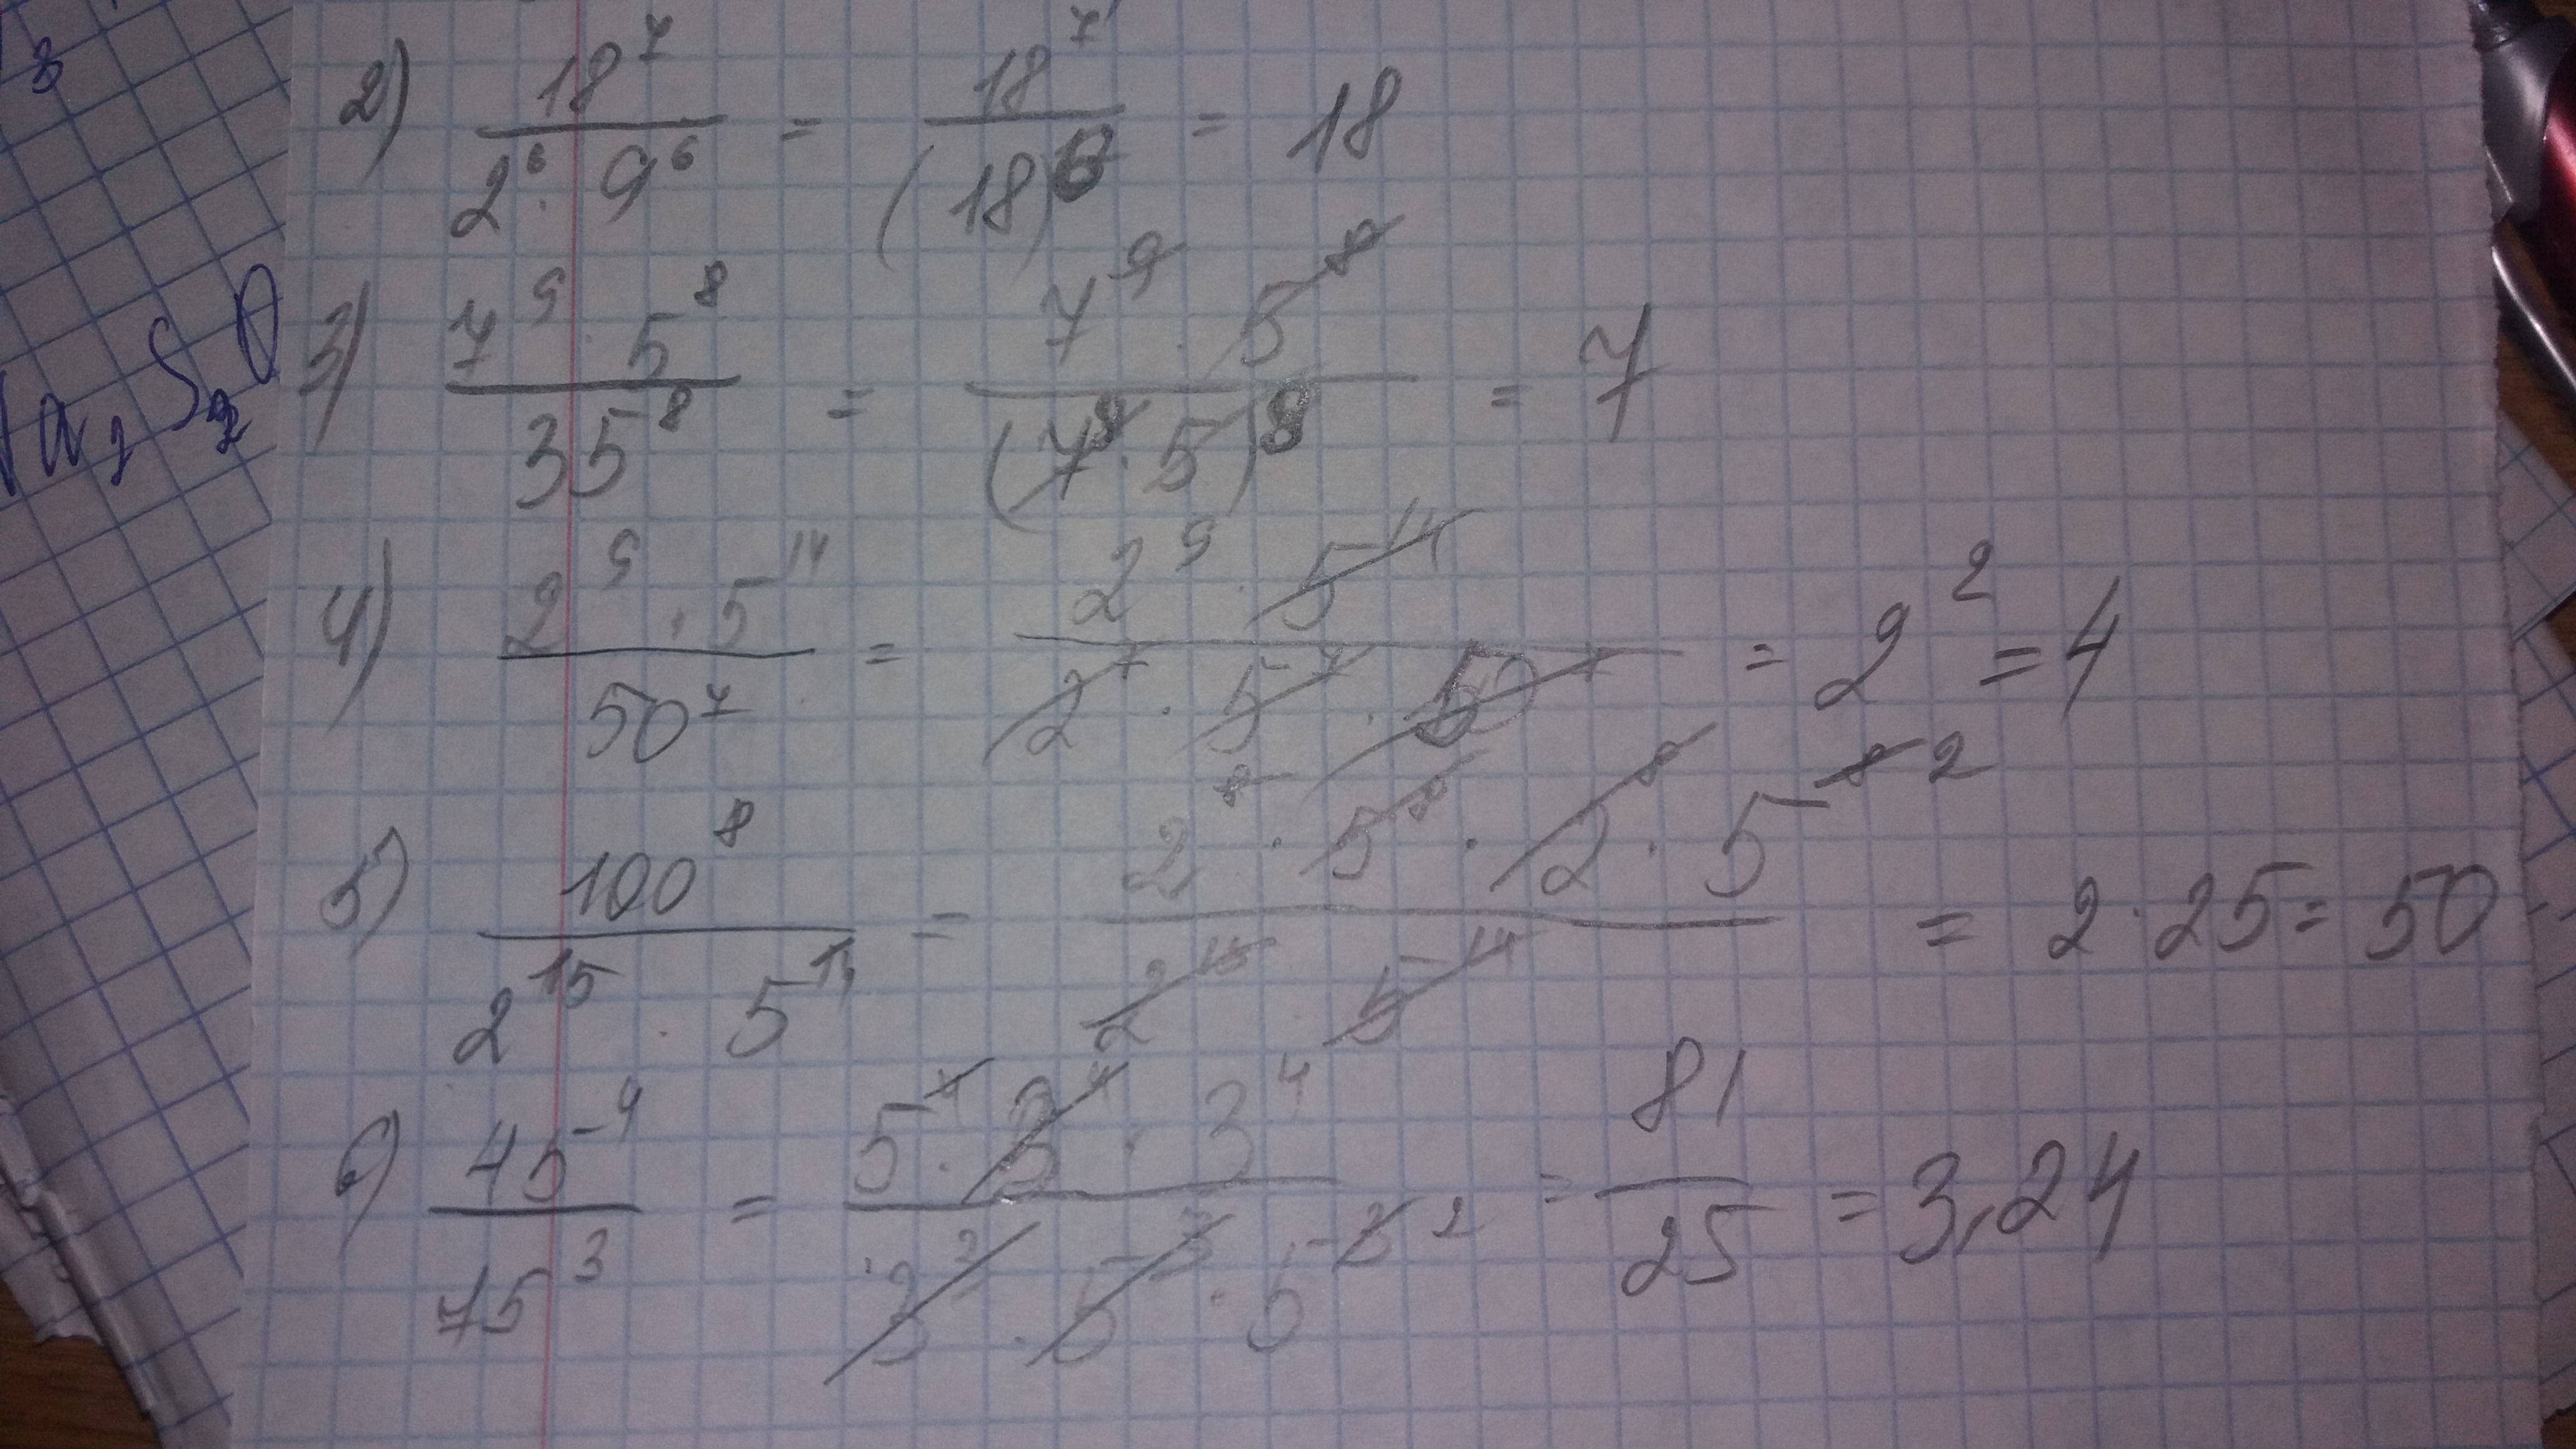 3
2) 18^7 / (2^6 · 9^6) = 18^7 / (18)^6 = 18
3) (7^9 · 5^8) / 35^8 = (7^9 · 5^8) / (7^8 · 5)^8 = 7
a_2 S_2 O
4) (2^9 · 5^14) / 50^7 = (2^9 · 5^14) / (2^7 · 5^7 · 50^7) = 2^2 = 4
5) 100^8 / (2^15 · 5^14) = (2^8 · 5^8 · 2^8 · 5^8 2) / (2^15 5^14) = 2 · 25 = 50
6) 45^4 / 75^3 = (5^4 · 3^4 · 3^4) / (3^3 · 5^3 · 5^3 2) = 81 / 25 = 3,24